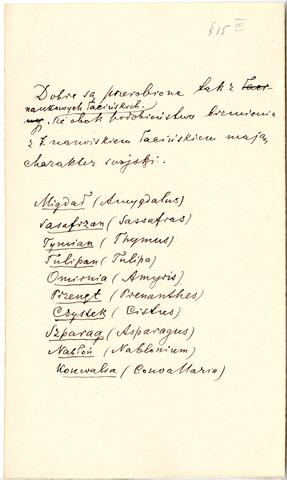 § 15 III
Dobre są przerobione tak z łaci
naukowych łacińskich.
że obok podobieństwa brzmienia
z nazwiskiem łacińskiem mają
charakter swojski.
Migdał (Amygdalus)
Sasafrzan (Sassafras)
Tymian (Thymus)
Tulipan (Tulipa)
Omirnia (Amyris)
Przengt (Prenanthes)
Czystek (Cistus)
Szparag (Asparagus)
Nabłoń (Nablonium)
Konwalia (Convallaria)